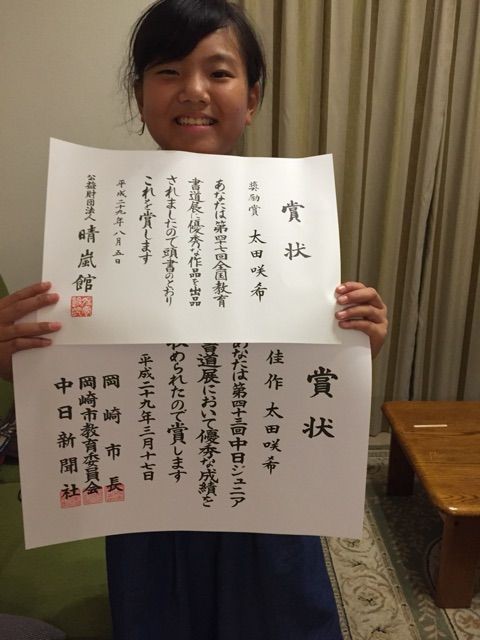 賞状
奨励賞 太田咲希
あなたは第四十七回全国教育
書道展に優秀な作品を出品
されましたので頭書のとおり
これを賞します
平成二十九年八月五日
公益財団法人 晴嵐館
賞状
佳作 太田咲希
あなたは第四十三回中日ジュニア
書道展において優秀な成績を
収められたので賞します
平成二十九年三月十七日
岡崎市長
岡崎市教育委員会
中日新聞社